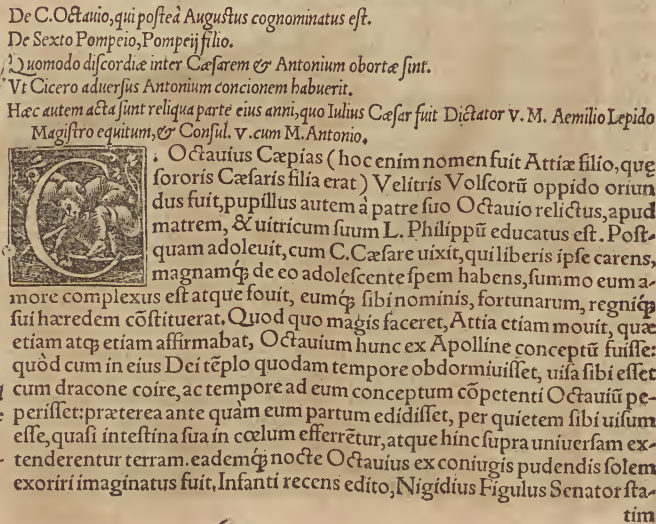 De C.Octauio,qui posteà Augustus cognominatus est.
De Sexto Pompeio,Pompeij filio.
Quomodo discordiæ inter Cæsarem & Antonium obortæ sint.
Vt Cicero aduersus Antonium concionem habuerit.
Hæc autem acta sunt reliqua parte eius anni,quo Iulius Cæsar fuit Dictator V. M. Aemilio Lepido
Magistro equitum,& Consul. V. cum M.Antonio.
C. Octauius Cæpias (hoc enim nomen fuit Attiæ filio,quę
sororis Cæsaris filia erat) Velitris Volscorũ oppido oriun
dus fuit,pupillus autem à patre suo Octauio relictus,apud
matrem, & uitricum suum L. Philippũ educatus est. Post-
quam adoleuit,cum C.Cæsare uixit,qui liberis ipse carens,
magnamq́; de eo adolescente spem habens,summo eum a-
more complexus est atque fouit, eumq́; sibi nominis, fortunarum, regniq́;
sui hæredem cõstituerat. Quod quo magis faceret,Attia etiam mouit, quæ
etiam atq; etiam affirmabat, Octauium hunc ex Apolline conceptũ fuisse:
quòd cum in eius Dei tẽplo quodam tempore obdormiuisset, uisa sibi esset
cum dracone coire,ac tempore ad eum conceptum cõpetenti Octauiũ pe-
perisset:præterea ante quàm eum partum edidisset, per quietem sibi uisum
esse,quasi intestina sua in cœlum efferrẽtur,atque hinc supra uniuersam ex-
tenderentur terram. eademq́; nocte Octauius ex coniugis pudendis solem
exoriri imaginatus fuit. Infanti recens edito,Nigidius Figulus Senator sta-
tim